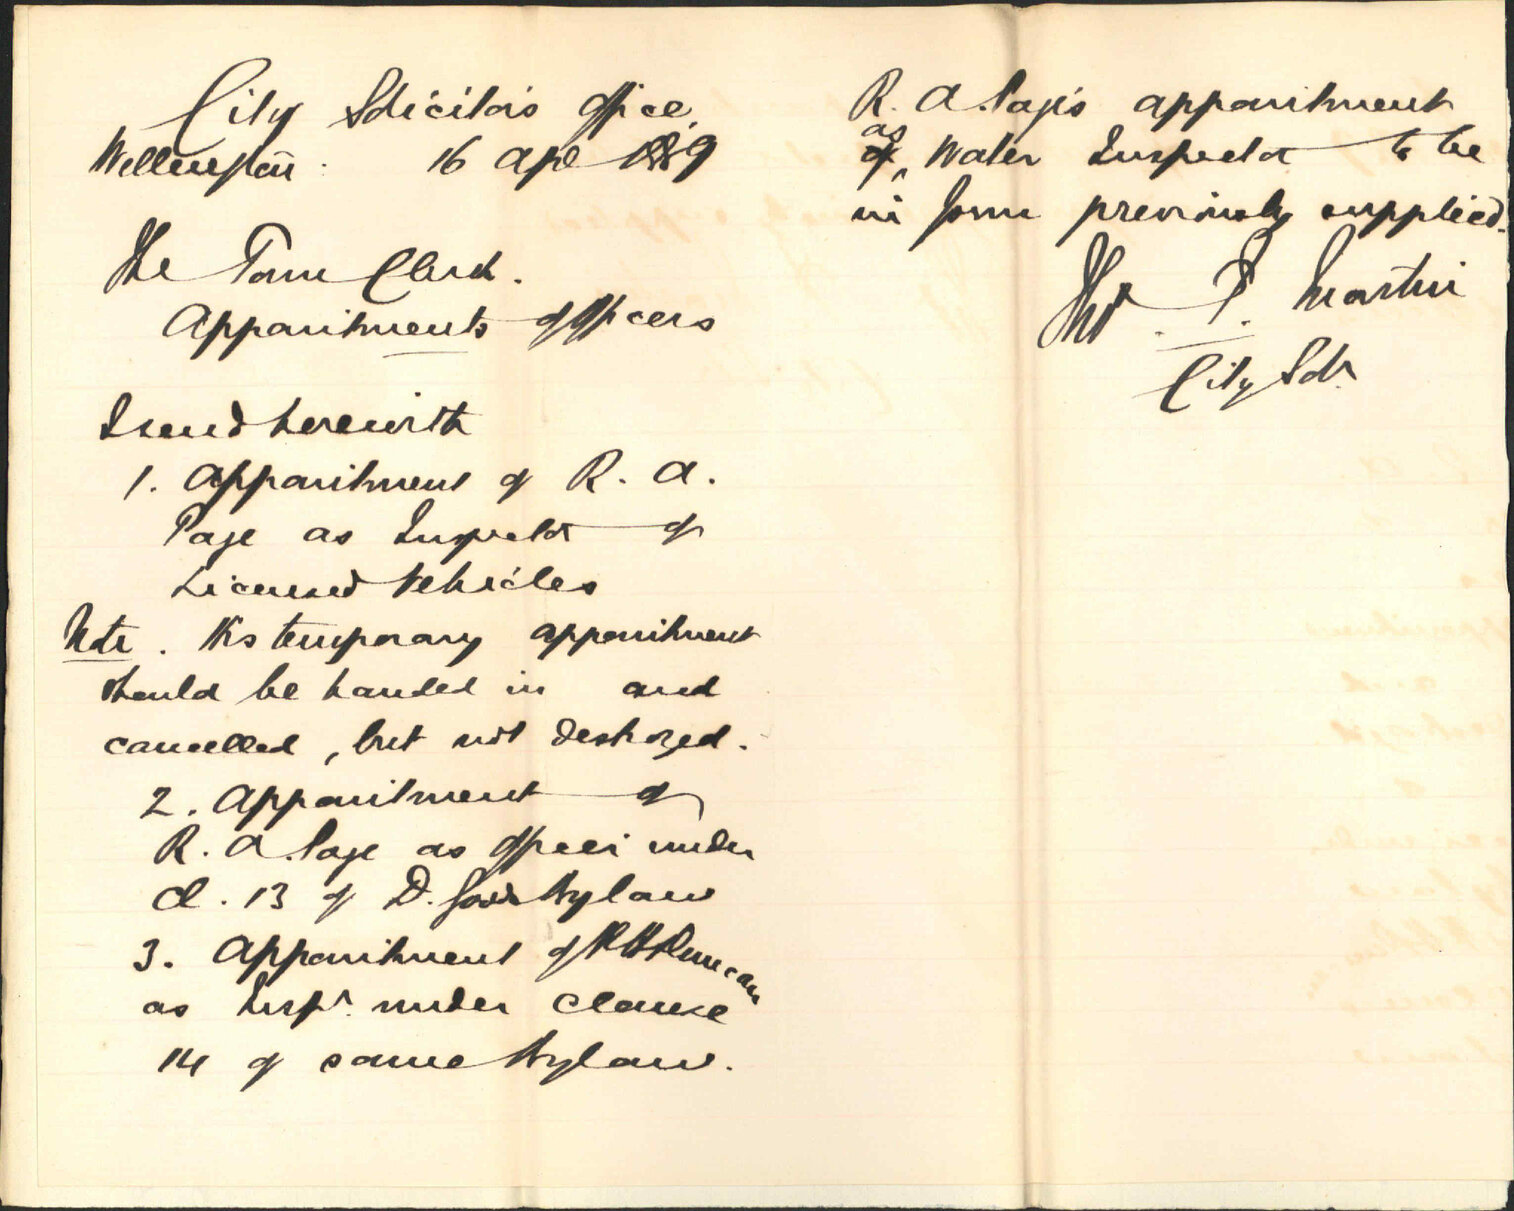 City Solicitor's Office,
Wellington: 16 Apl 1889
The Town Clerk.
Appointments of Officers
I send herewith
1. Appointment of R. A.
Page as Inspector of
Licensed Vehicles
Note. His temporary appointment
should be handed in and
cancelled, but not destroyed.
2. Appointment of
R. A. Page as Officer under
cl. 13 of D. Goods Bylaw
3. Appointment of R H Duncan
as Inspr. under clause
14 of same Bylaw.
R. A. Page's appointment
as Water Inspector to be
in form previously supplied.
Thos. F. Martin
City Solr